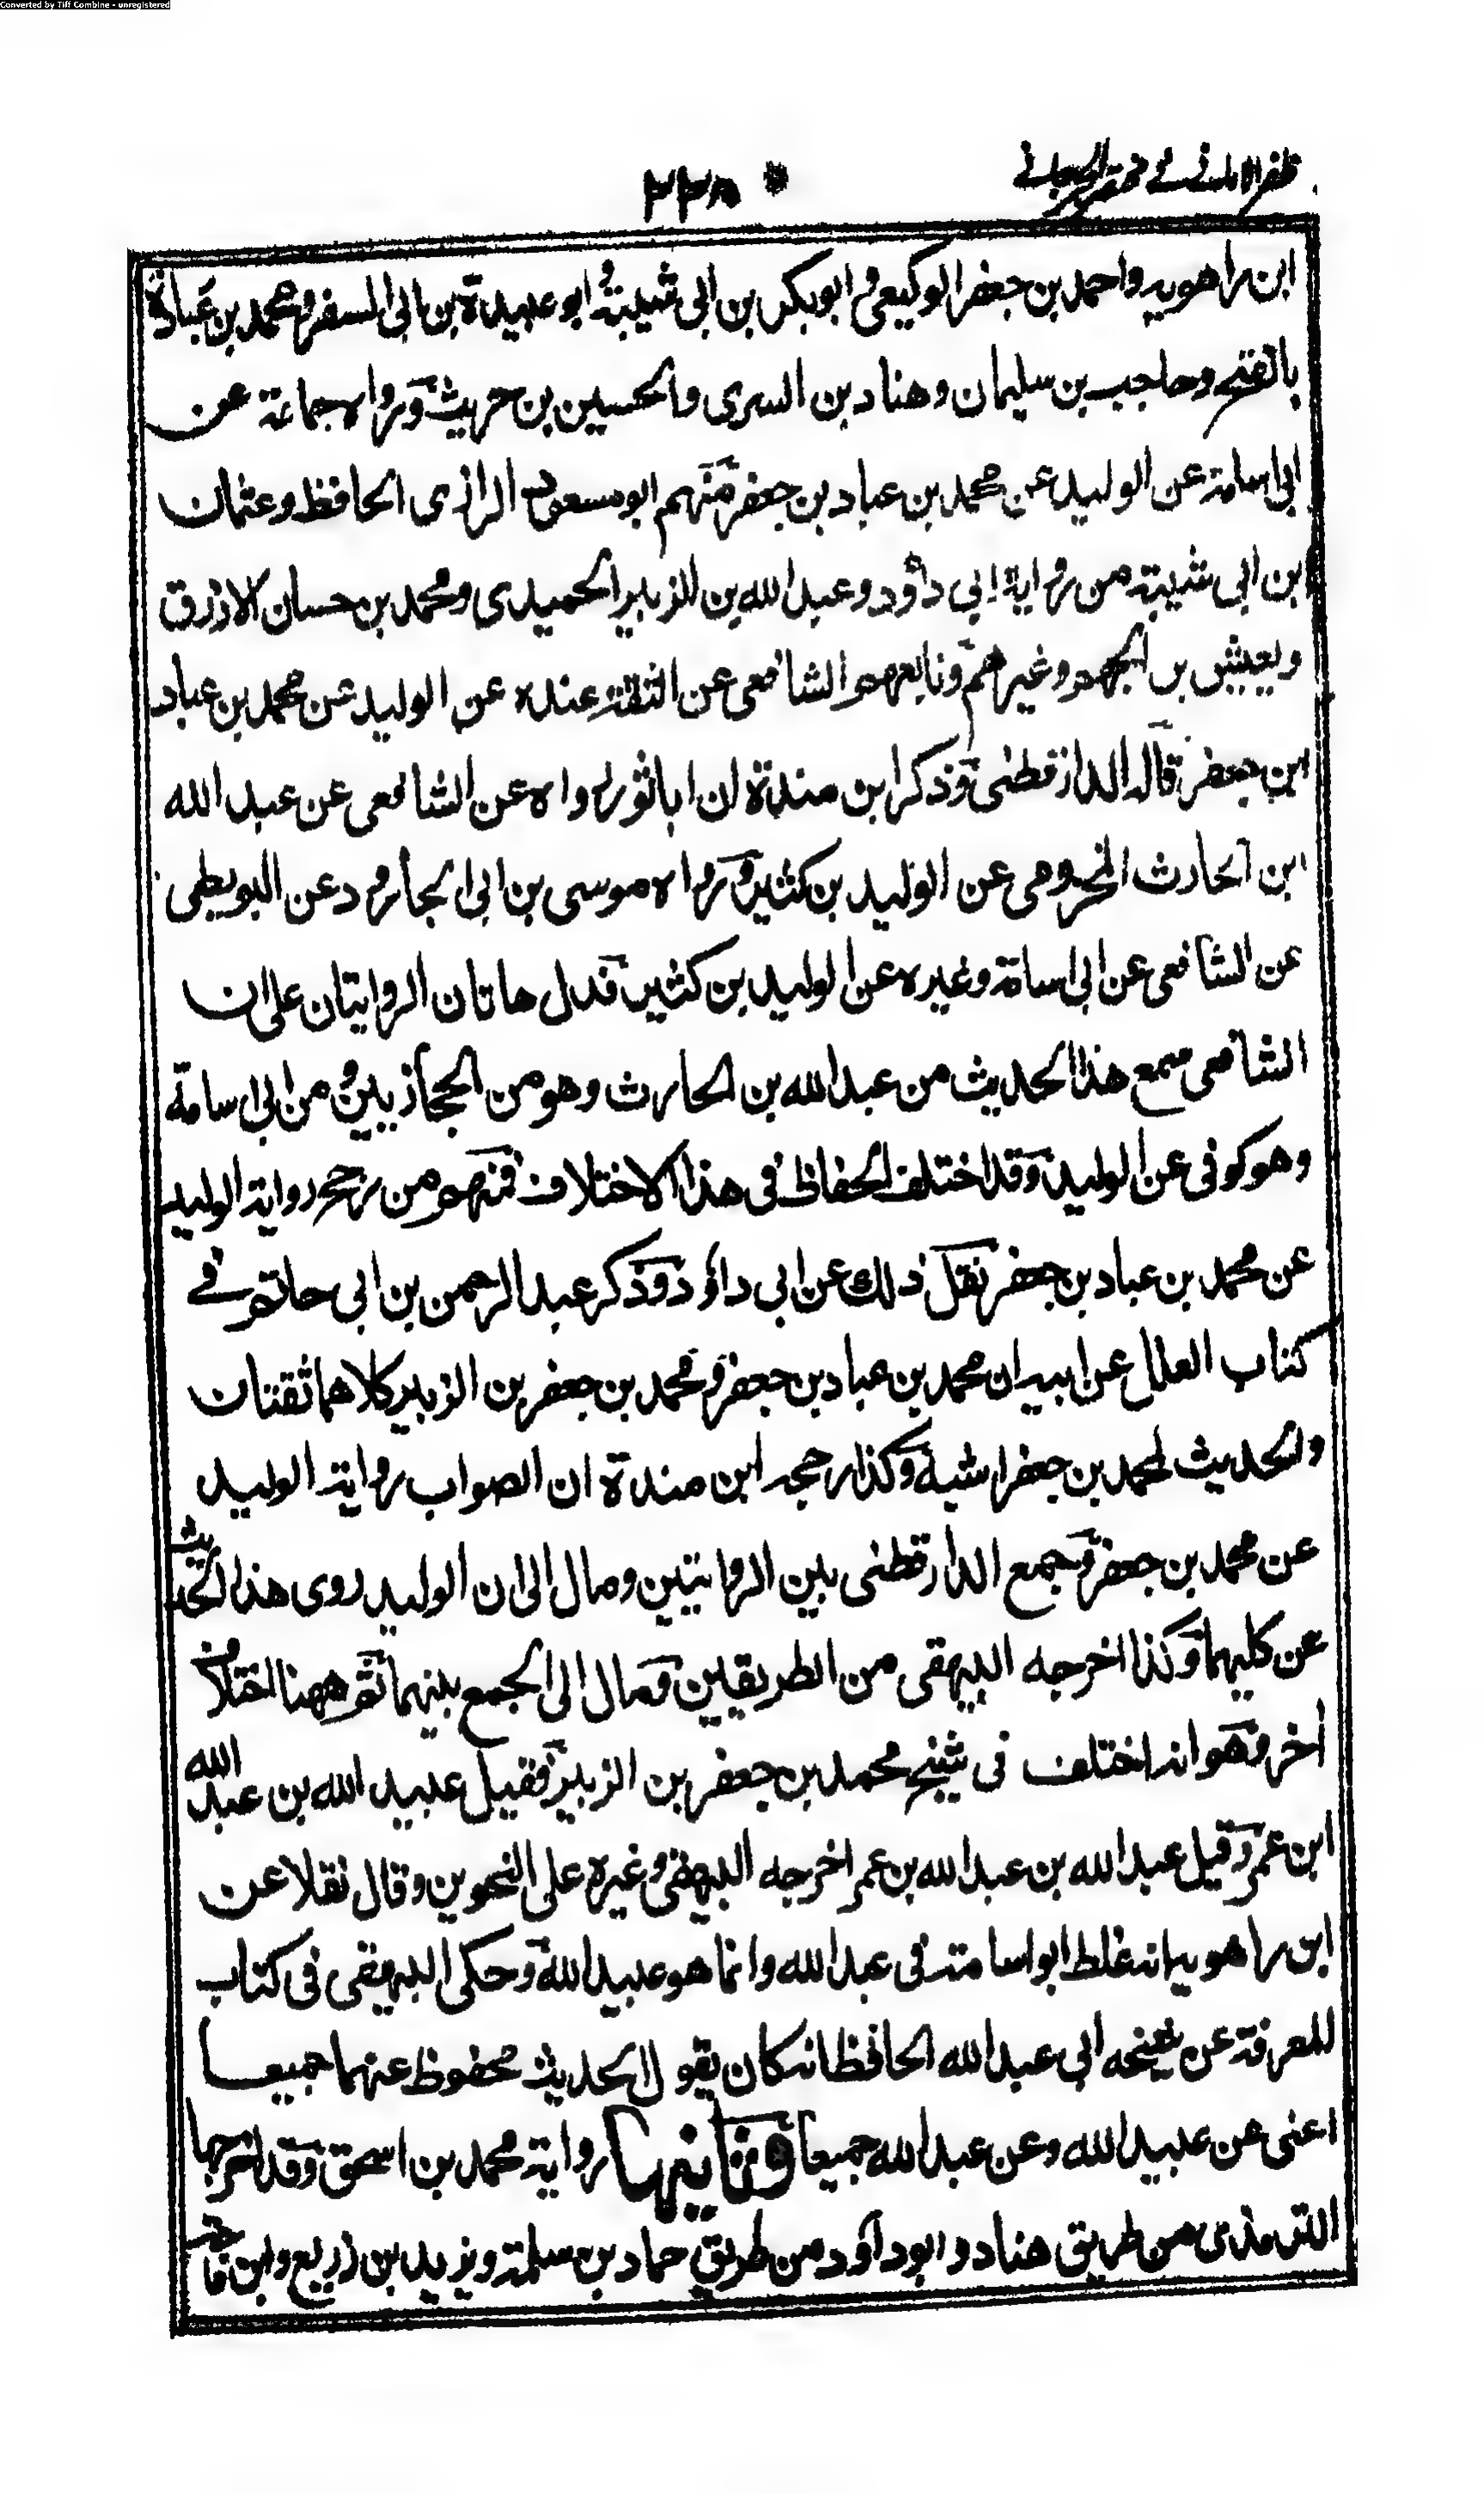 Converted by Tiff Combine - unregistered
ظفر الامانى فى مختصر الجرجانے
۲۲۸ *
ابن راهويه واحمد بن جعفر الوكيعى وابوبكر بن ابى شيبة وابو عبيدة بن ابى السفر ومحمد بن عبادة
بالفتح وحاجب بن سليمان وهناد بن السرى والحسين بن حريث ورواه جماعة عن
ابى اسامة عن الوليد عن محمد بن عباد بن جعفر منهم ابو مسعود الرازى الحافظ وعثمان
ابن ابى شيبة من رواية ابى داؤد وعبد الله بن الزبير الحميدى ومحمد بن حسان الازرق
ويعيش بن الجهم وغيرهم وتابعهم الشافعى عن الثقة عنده عن الوليد عن محمد بن عباد
ابن جعفر قاله الدارقطنى وذكر ابن مندة ان اباثور رواه عن الشافعى عن عبد الله
ابن الحارث المخزومى عن الوليد بن كثير ورواه موسى بن ابى الجارود عن البويطى
عن الشافعى عن ابى اسامة وغيره عن الوليد بن كثير فدل هاتان الروايتان على ان
الشافعى سمع هذا الحديث من عبد الله بن الحارث وهو من الحجازيين ومن ابى اسامة
وهو كوفى عن الوليد وقد اختلف الحفاظ فى هذا الاختلاف فمنهم من رجح رواية الوليد
عن محمد بن عباد بن جعفر نقل ذلك عن ابى داؤد وذكر عبد الرحمن بن ابى حاتم فے
كتاب العلل عن ابيه ان محمد بن عباد بن جعفر ومحمد بن جعفر بن الزبير كلاهما ثقتان
والحديث لمحمد بن جعفر اشبه وكذا رجحه ابن مندة ان الصواب رواية الوليد
عن محمد بن جعفر وجمع الدارقطنى بين الروايتين ومال الى ان الوليد روى هذا الحديث
عن كليهما وكذا اخرجه البيهقى من الطريقين ومال الى الجمع بينهما ثم ههنا اختلاف
اخر وهو انه اختلف فى شيخ محمد بن جعفر بن الزبير فقيل عبيد الله بن عبد الله
ابن عمر وقيل عبد الله بن عبد الله بن عمر اخرجه البيهقى وغيره على النحوين وقال نقلا عن
ابن راهويه انه غلط ابو اسامة فى عبد الله وانما هو عبيد الله وحكى البيهقى فى كتاب
المعرفة عن شيخه ابى عبد الله الحافظ انه كان يقول الحديث محفوظ عنهما جميعا
اعنى عن عبيد الله وعن عبد الله جميعا وثانيها رواية محمد بن اسحق وقد اخرجها
الترمذى من طريق هناد وابو داؤد من طريق حماد بن سلمة ويزيد بن زريع وابن ماجه